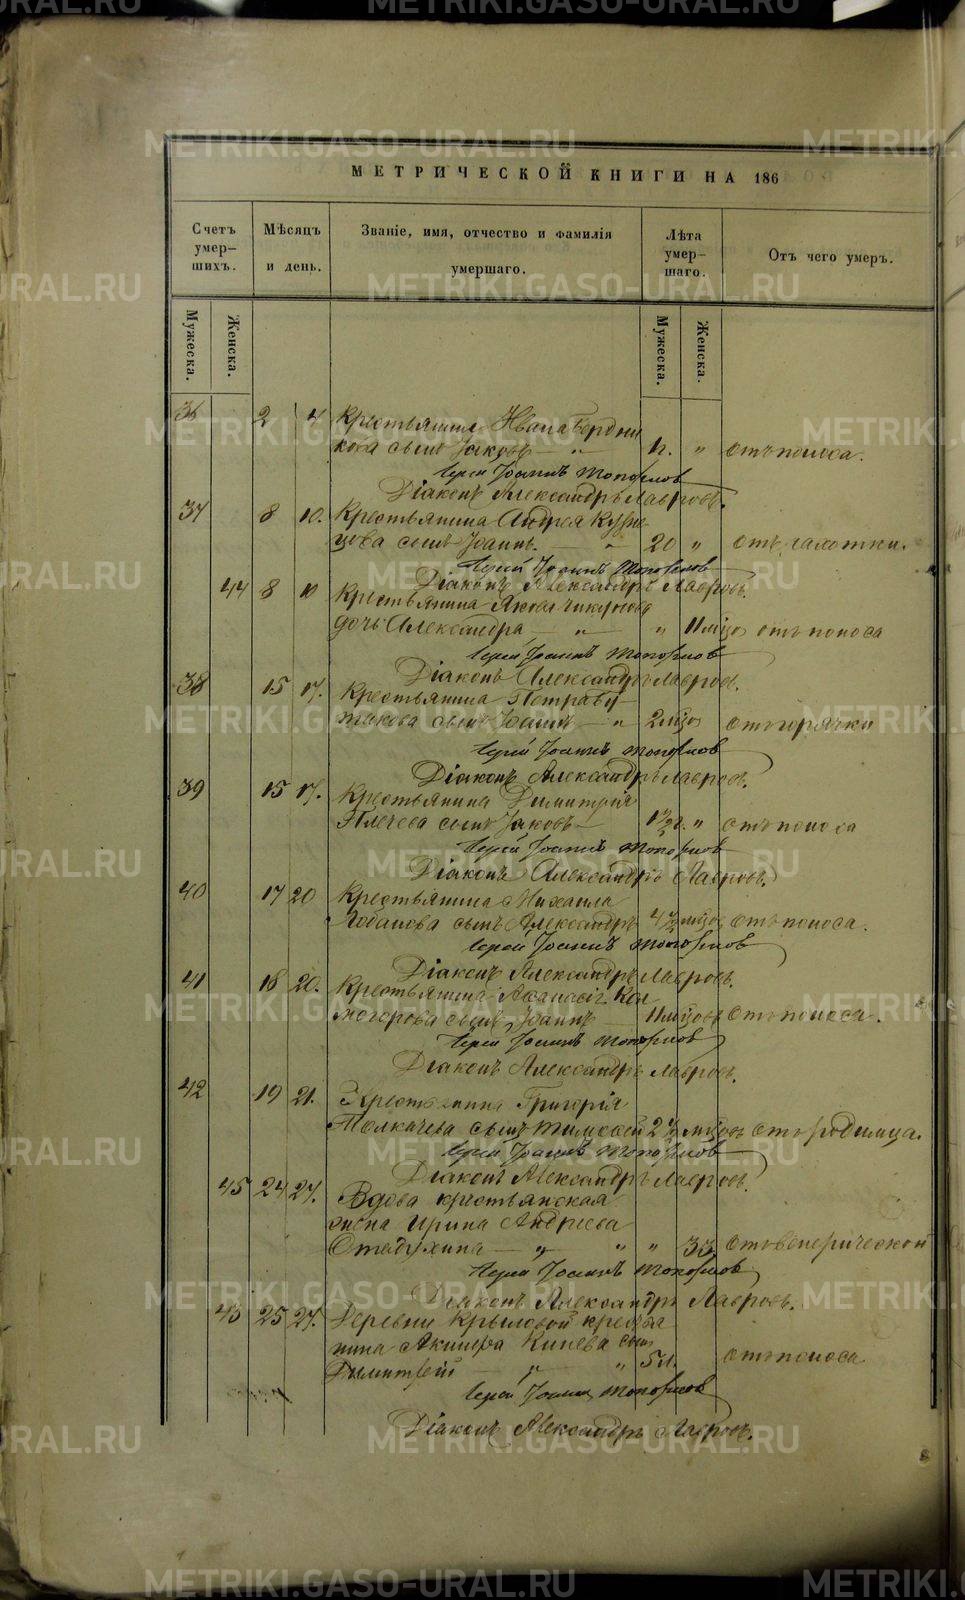 МЕТРИЧЕСКОЙ КНИГИ НА 186
Счетъ умер-шихъ.
Мѣсяцъ и день.
Званіе, имя, отчество и фамилія умершаго.
Лѣта умер-шаго.
Отъ чего умеръ.
Мужеска.
Женска.
Мужеска.
Женска.
36 2 4 Крестьянина Ивана Бердни
кова сынъ Іаковъ — „ — „ отъ поноса.
Іерей Іоаннъ Топорковъ
Діаконъ Александръ Лавровъ.
37 8 10. Крестьянина Андрея Кузне
цова сынъ Іоаннъ. — „ 20 „ отъ чахотки.
Іерей Іоаннъ Топорковъ
Діаконъ Александръ Лавровъ.
44 8 10 Крестьянина Якова
дочь Александра, — „ — „ 11 мѣцо отъ поноса
Іерей Іоаннъ Топорковъ
Діаконъ Александръ Лавровъ.
38 15 17. Крестьянина Петра
сынъ Іоаннъ — „ 2 мѣцо отъ горячки
Іерей Іоаннъ Топорковъ
Діаконъ Александръ Лавровъ.
39 15 17. Крестьянина Димитрія
Плечева сынъ Іаковъ — 1½ г. „ отъ поноса
Іерей Іоаннъ Топорковъ
Діаконъ Александръ Лавровъ.
40 17 20 Крестьянина Михаила
Лобанова сынъ Александръ 4½ мѣцов отъ поноса.
Іерей Іоаннъ Топорковъ
Діаконъ Александръ Лавровъ.
41 18 20. Крестьянина Кол
могорова сынъ Іоаннъ — 11 мѣцовъ отъ поноса.
Іерей Іоаннъ Топорковъ
Діаконъ Александръ Лавровъ.
42 19 21. Крестьянина Григорія
Толкачева сынъ Тимофей 2½ мѣцовъ отъ родимца.
Іерей Іоаннъ Топорковъ
Діаконъ Александръ Лавровъ.
45 24 27. Вдова крестьянская
жена Ирина Андреева
— „ „ „ 33 отъ венерической
Іерей Іоаннъ Топорковъ
Діаконъ Александръ Лавровъ.
43 25 27. Деревни Крыловой крестья
нина Кинева сынъ
Димитрій — „ „ 5 л. отъ поноса
Іерей Іоаннъ Топорковъ
Діаконъ Александръ Лавровъ.
METRIKI.GASO-URAL.RU